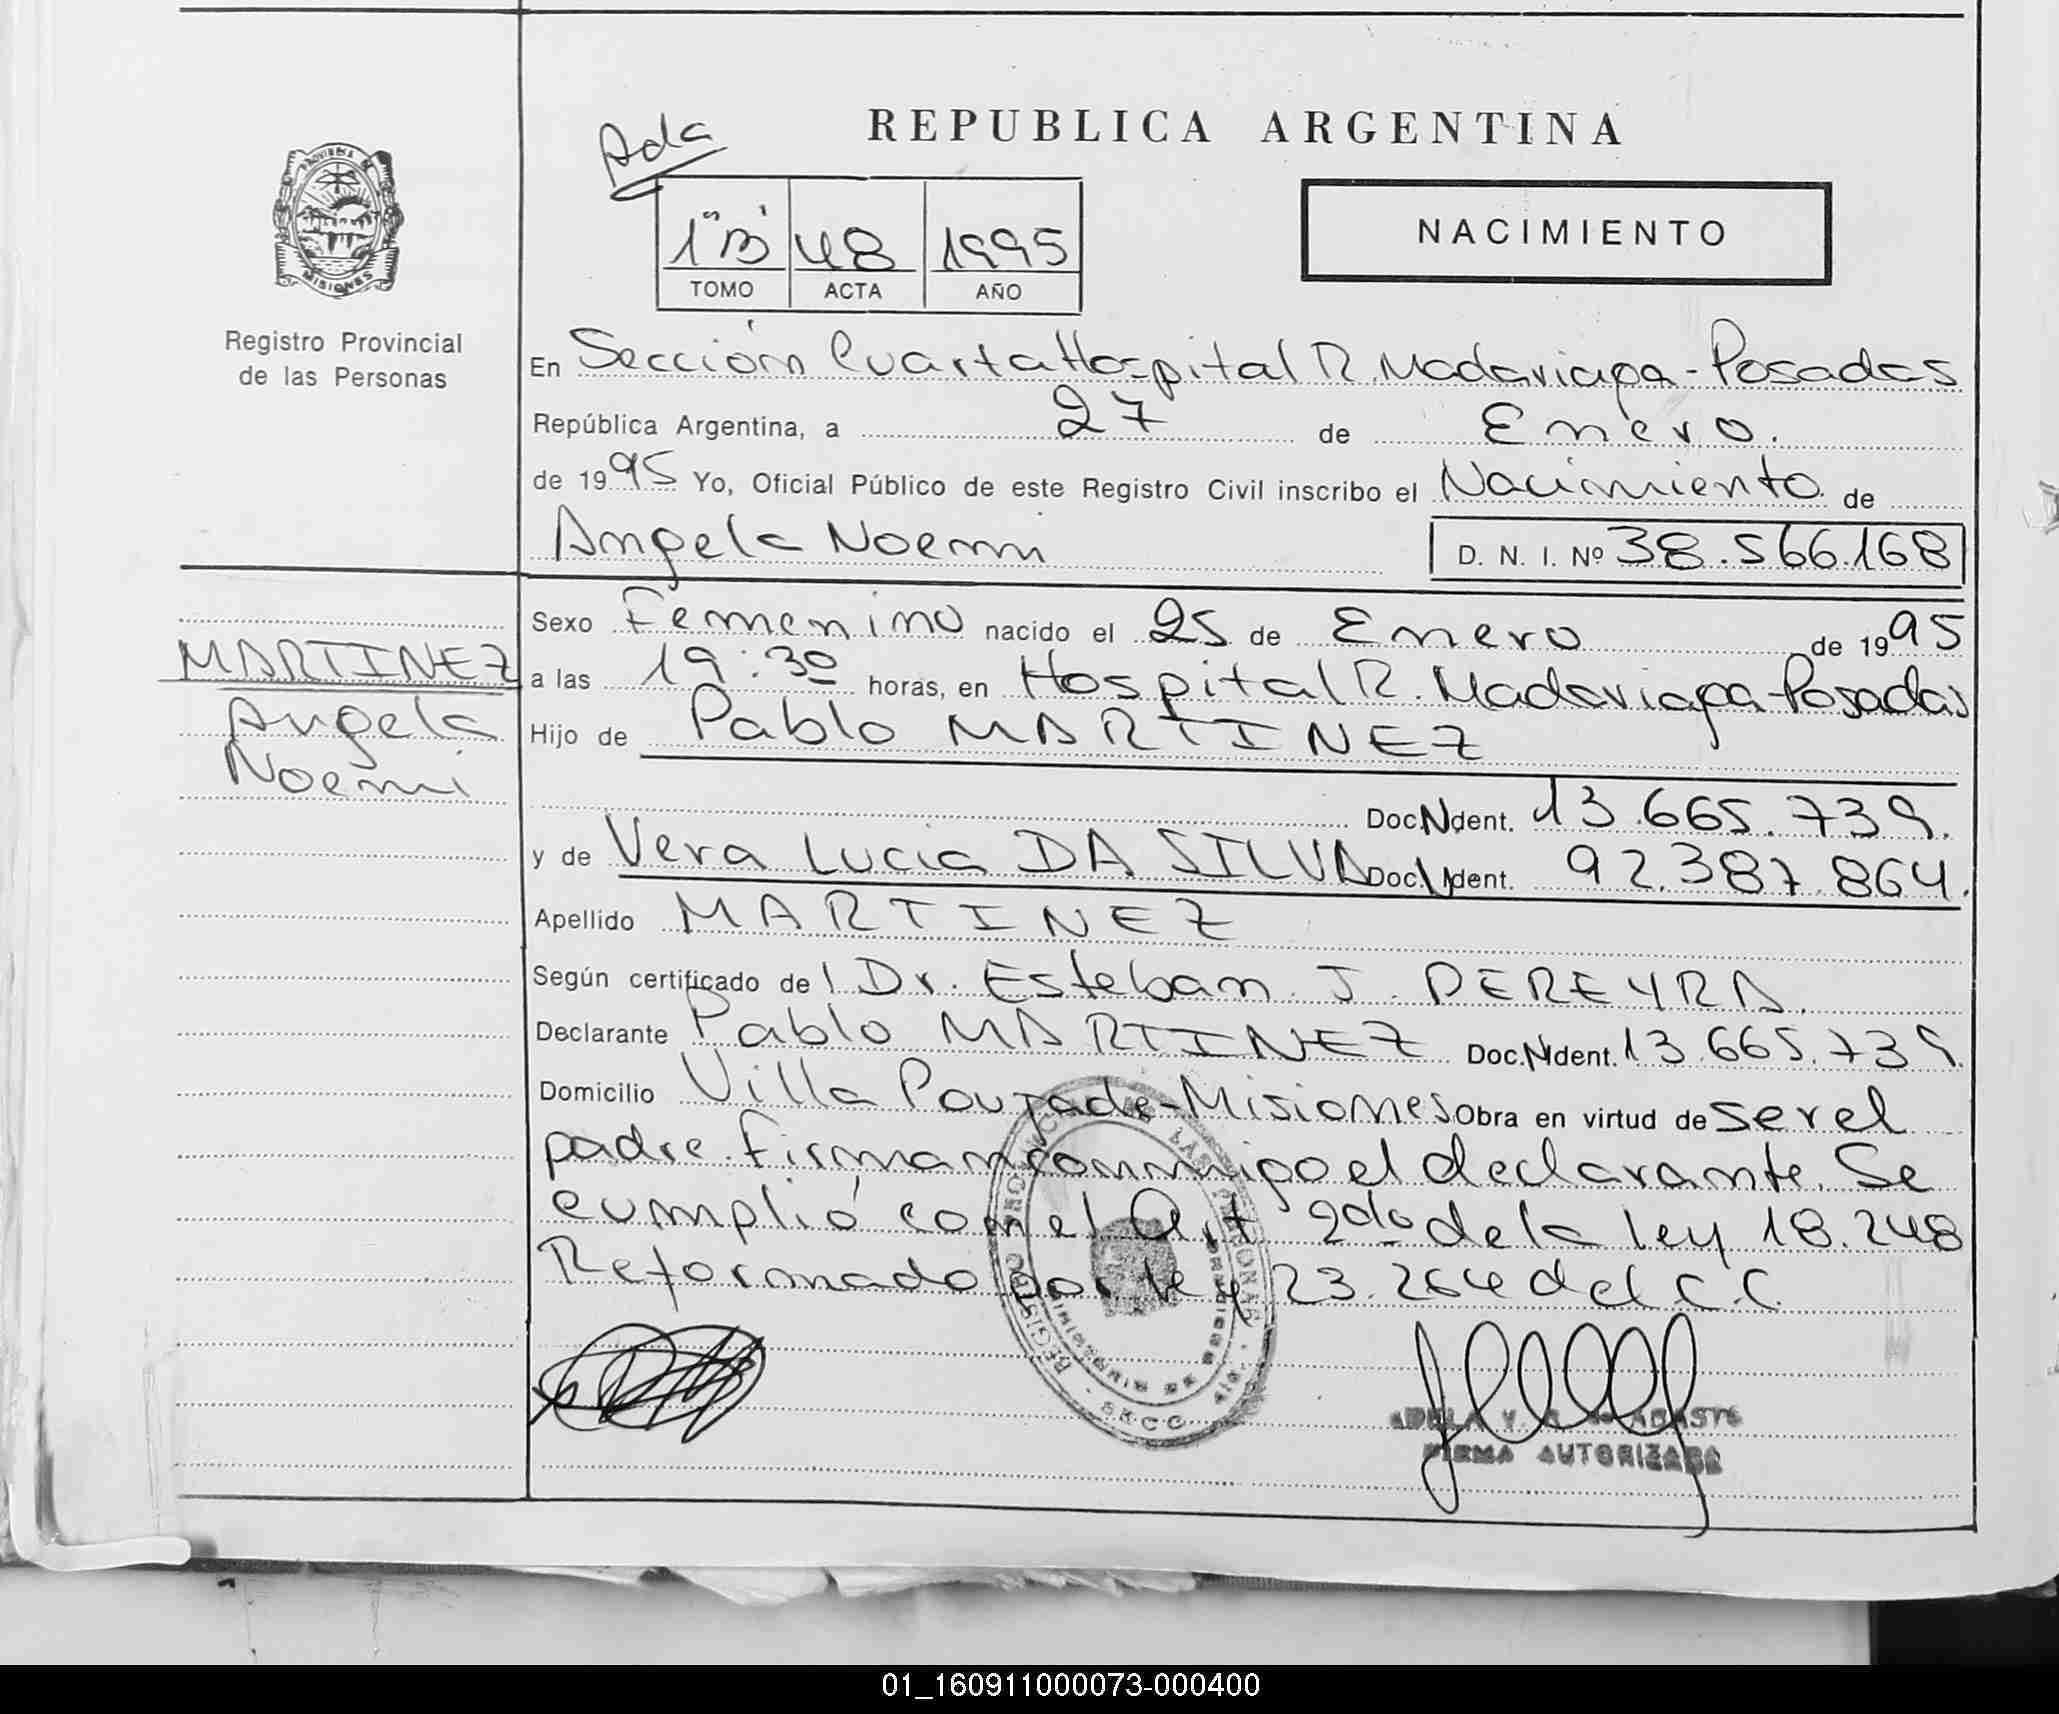 REPUBLICA ARGENTINA
Ada
PROVINCIA DE
MISIONES
1"B" 48 1995
TOMO ACTA AÑO
NACIMIENTO
Registro Provincial
de las Personas
En Sección Cuarta Hospital R. Madariaga - Posadas
República Argentina, a 27 de Enero.
de 1995 Yo, Oficial Público de este Registro Civil inscribo el Nacimiento de
Angela Noemi D. N. I. Nº 38.566.168
Sexo Femenino nacido el 25 de Enero de 1995
MARTINEZ
Angela
Noemi
a las 19:30 horas, en Hospital R. Madariaga - Posadas
Hijo de Pablo MARTINEZ
Doc.N.Ident. 13.665.739.
y de Vera Lucia DA SILVA Doc.N.Ident. 92.387.864.
Apellido MARTINEZ
Según certificado del Dr. Esteban J. PEREYRA.
Declarante Pablo MARTINEZ Doc.N.Ident. 13.665.739.
Domicilio Villa Poujade - Misiones Obra en virtud de ser el
padre. Firman conmigo el declarante. Se
cumplió con el Art 2do de la ley 18.248
Reformado por ley 23.264 del C.C.
FIRMA AUTORIZADA
01_160911000073-000400